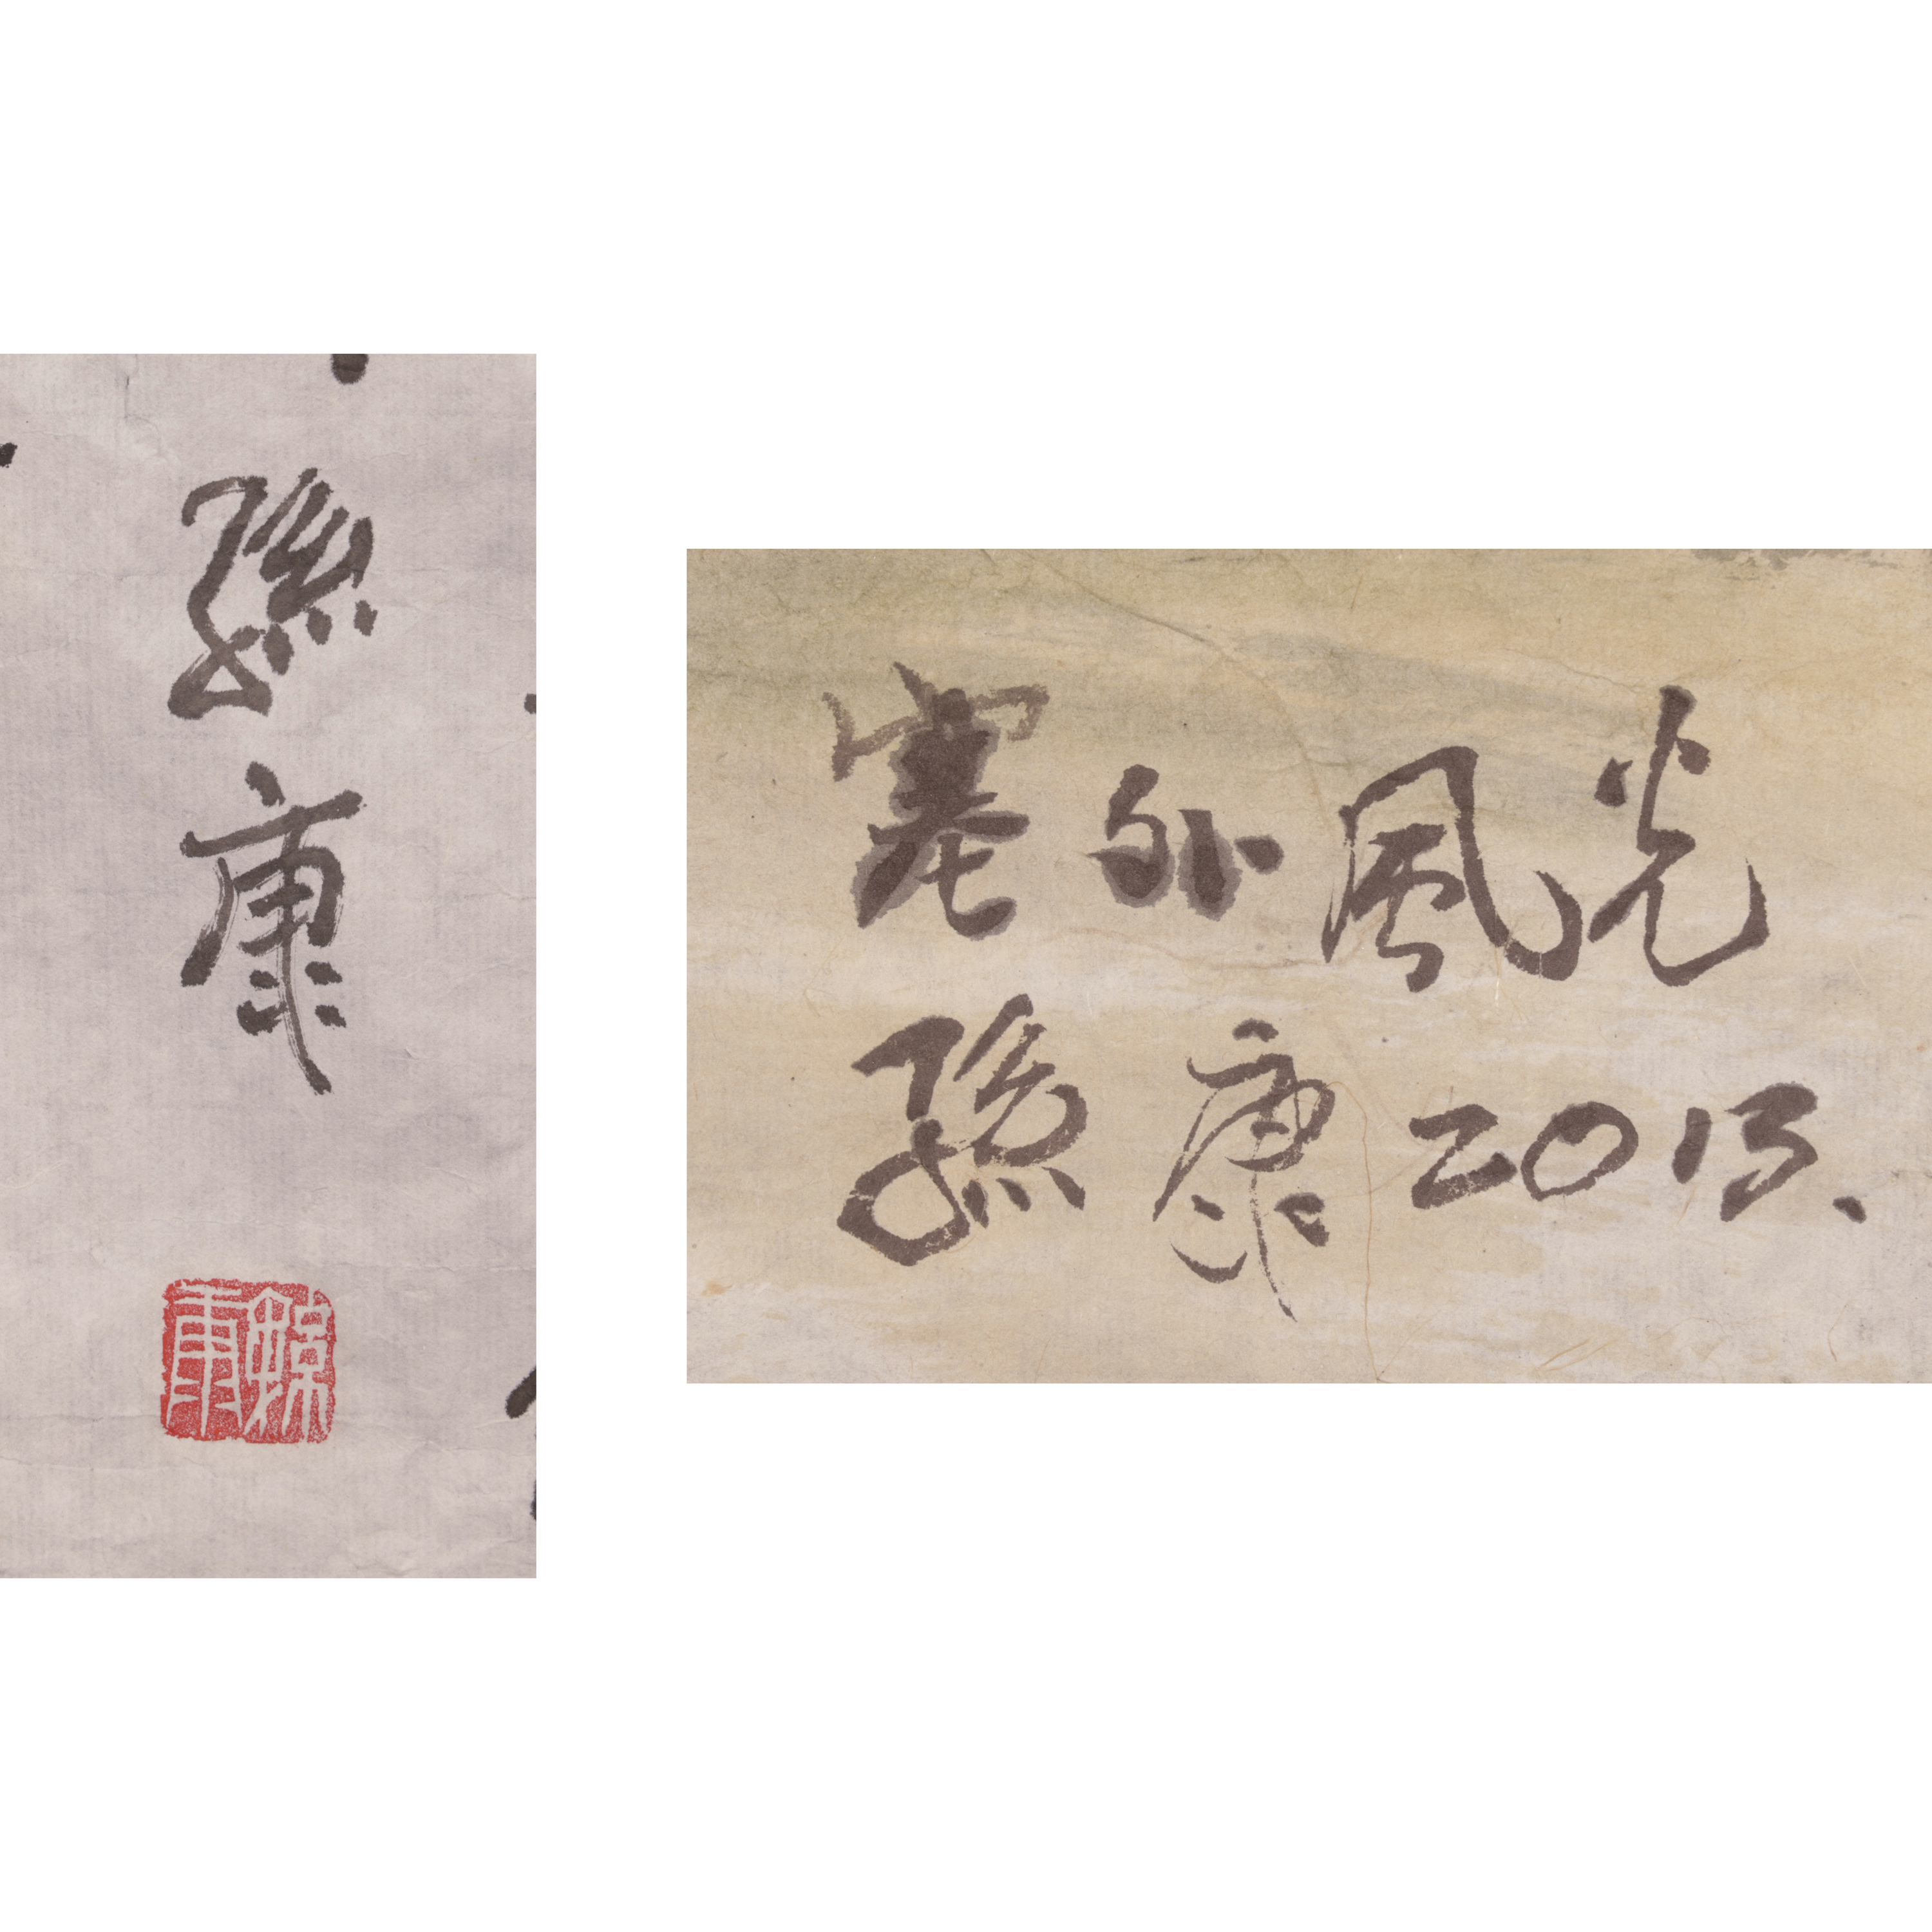 孫康
孫康
塞外風光
孫康2013.